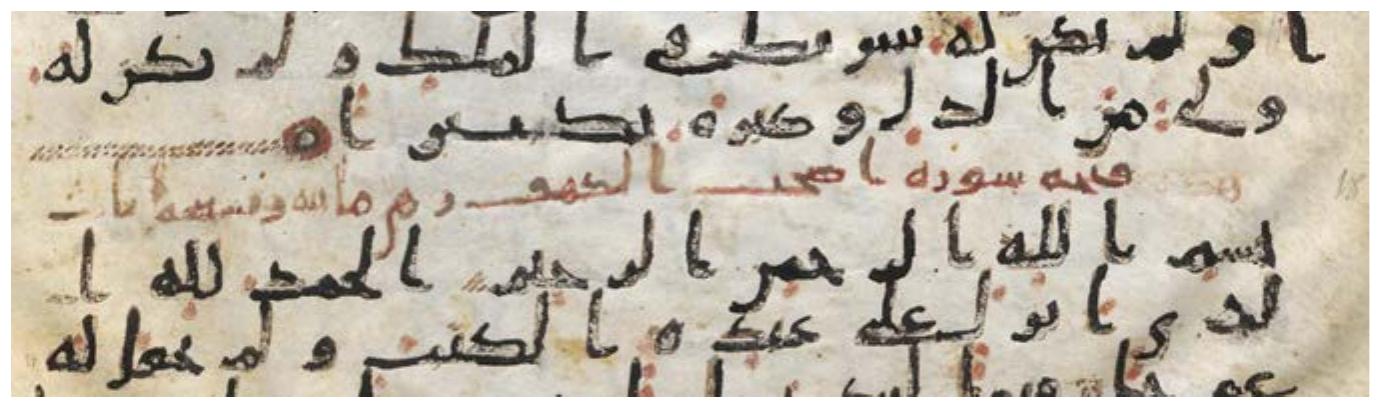 ا ولم يكن له شريك في الملك ولم يكن له
ولي من الذل وكبره تكبيرا
فتحه سوره اصحب الكهف
بسم الله الرحمن الرحيم الحمد لله ا
لذي انزل على عبده الكتب ولم يجعل له
عوجا قيما لينذر